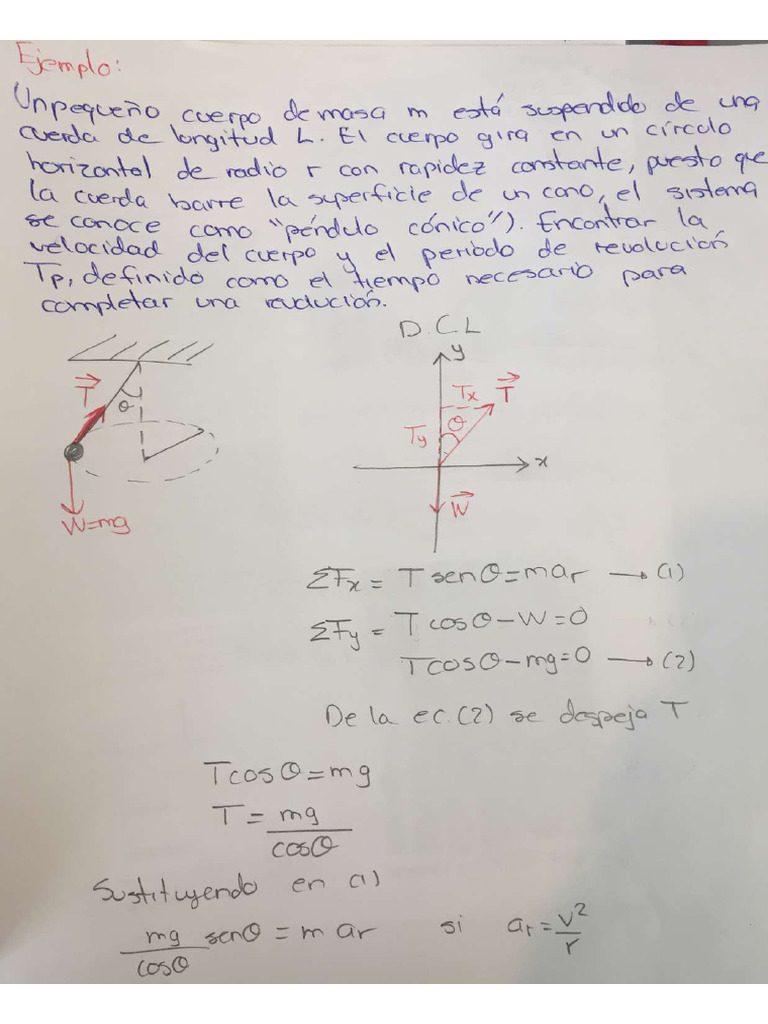 Ejemplo:
Un pequeño cuerpo de masa m está suspendido de una
cuerda de longitud L. El cuerpo gira en un círculo
horizontal de radio r con rapidez constante, puesto que
la cuerda barre la superficie de un cono, el sistema
se conoce como "péndulo cónico"). Encontrar la
velocidad del cuerpo y el periodo de revolución
Tp, definido como el tiempo necesario para
completar una revolución.
D.C.L
y
T⃗
θ
Tx
T⃗
Ty
θ
x
W⃗
W=mg
ΣFx = T senθ = mar → (1)
ΣFy = T cosθ - W = 0
T cosθ - mg = 0 → (2)
De la ec. (2) se despeja T
T cosθ = mg
T = mg/cosθ
Sustituyendo en (1)
mg/cosθ senθ = m ar si ar = v²/r